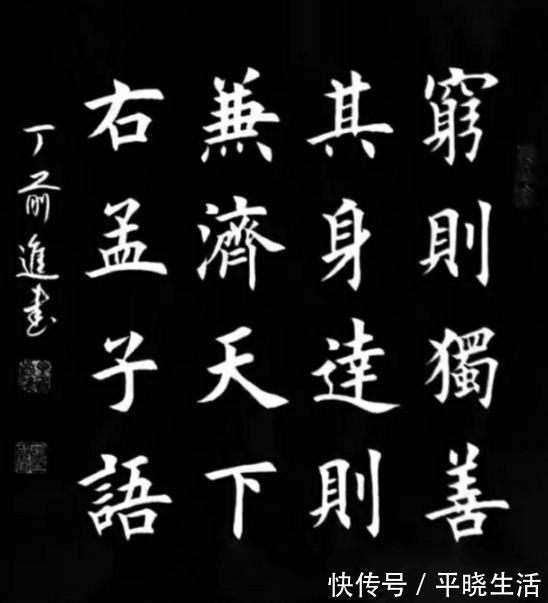 窮則獨善
其身達則
兼濟天下
右孟子語
丁前進書
快传号 / 平晓生活